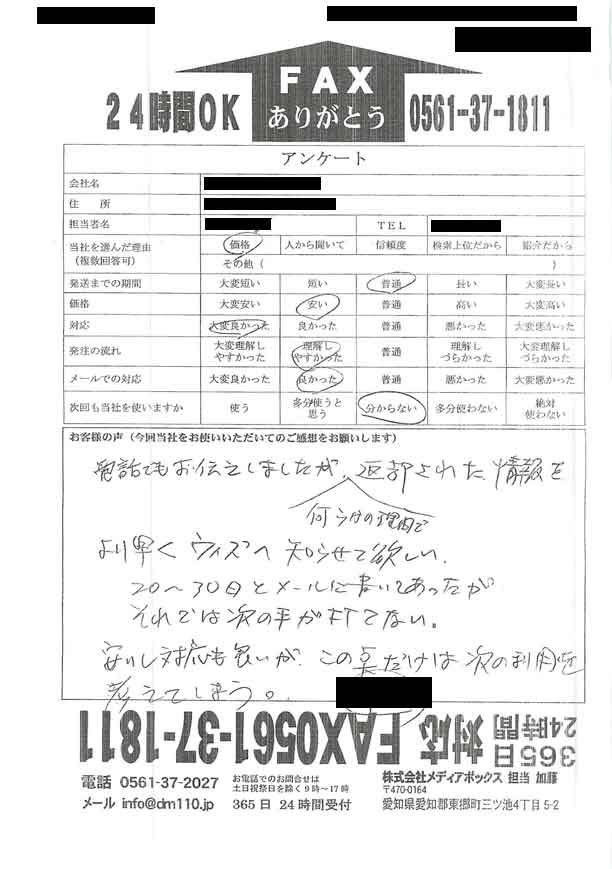 24時間OK
FAX
ありがとう
0561-37-1811
アンケート
会社名
住 所
担当者名 TEL
当社を選んだ理由 (複数回答可) 価格 人から聞いて 信頼度 検索上位だから 紹介だから
その他 ( )
発送までの期間 大変短い 短い 普通 長い 大変長い
価格 大変安い 安い 普通 高い 大変高い
対応 大変良かった 良かった 普通 悪かった 大変悪かった
発注の流れ 大変理解しやすかった 理解しやすかった 普通 理解しづらかった 大変理解しづらかった
メールでの対応 大変良かった 良かった 普通 悪かった 大変悪かった
次回も当社を使いますか 使う 多分使うと思う 分からない 多分使わない 絶対使わない
お客様の声(今回当社をお使いいただいてのご感想をお願いします)
電話でもお伝えしましたが、返却された情報を
何らかの理由で
より早く ウィズへ 知らせて欲しい。
20〜30日とメールに書いてあったが
それでは次の手が打てない。
安いし対応も良いが、この点だけは次の利用を
考えてしまう。
365日
24時間
対応 FAX0561-37-1811
電話 0561-37-2027
お電話でのお問合せは
土日祝祭日を除く9時〜17時
株式会社メディアボックス 担当 加藤
〒470-0164
メール info@dm110.jp
365日 24時間受付
愛知県愛知郡東郷町三ツ池4丁目5-2